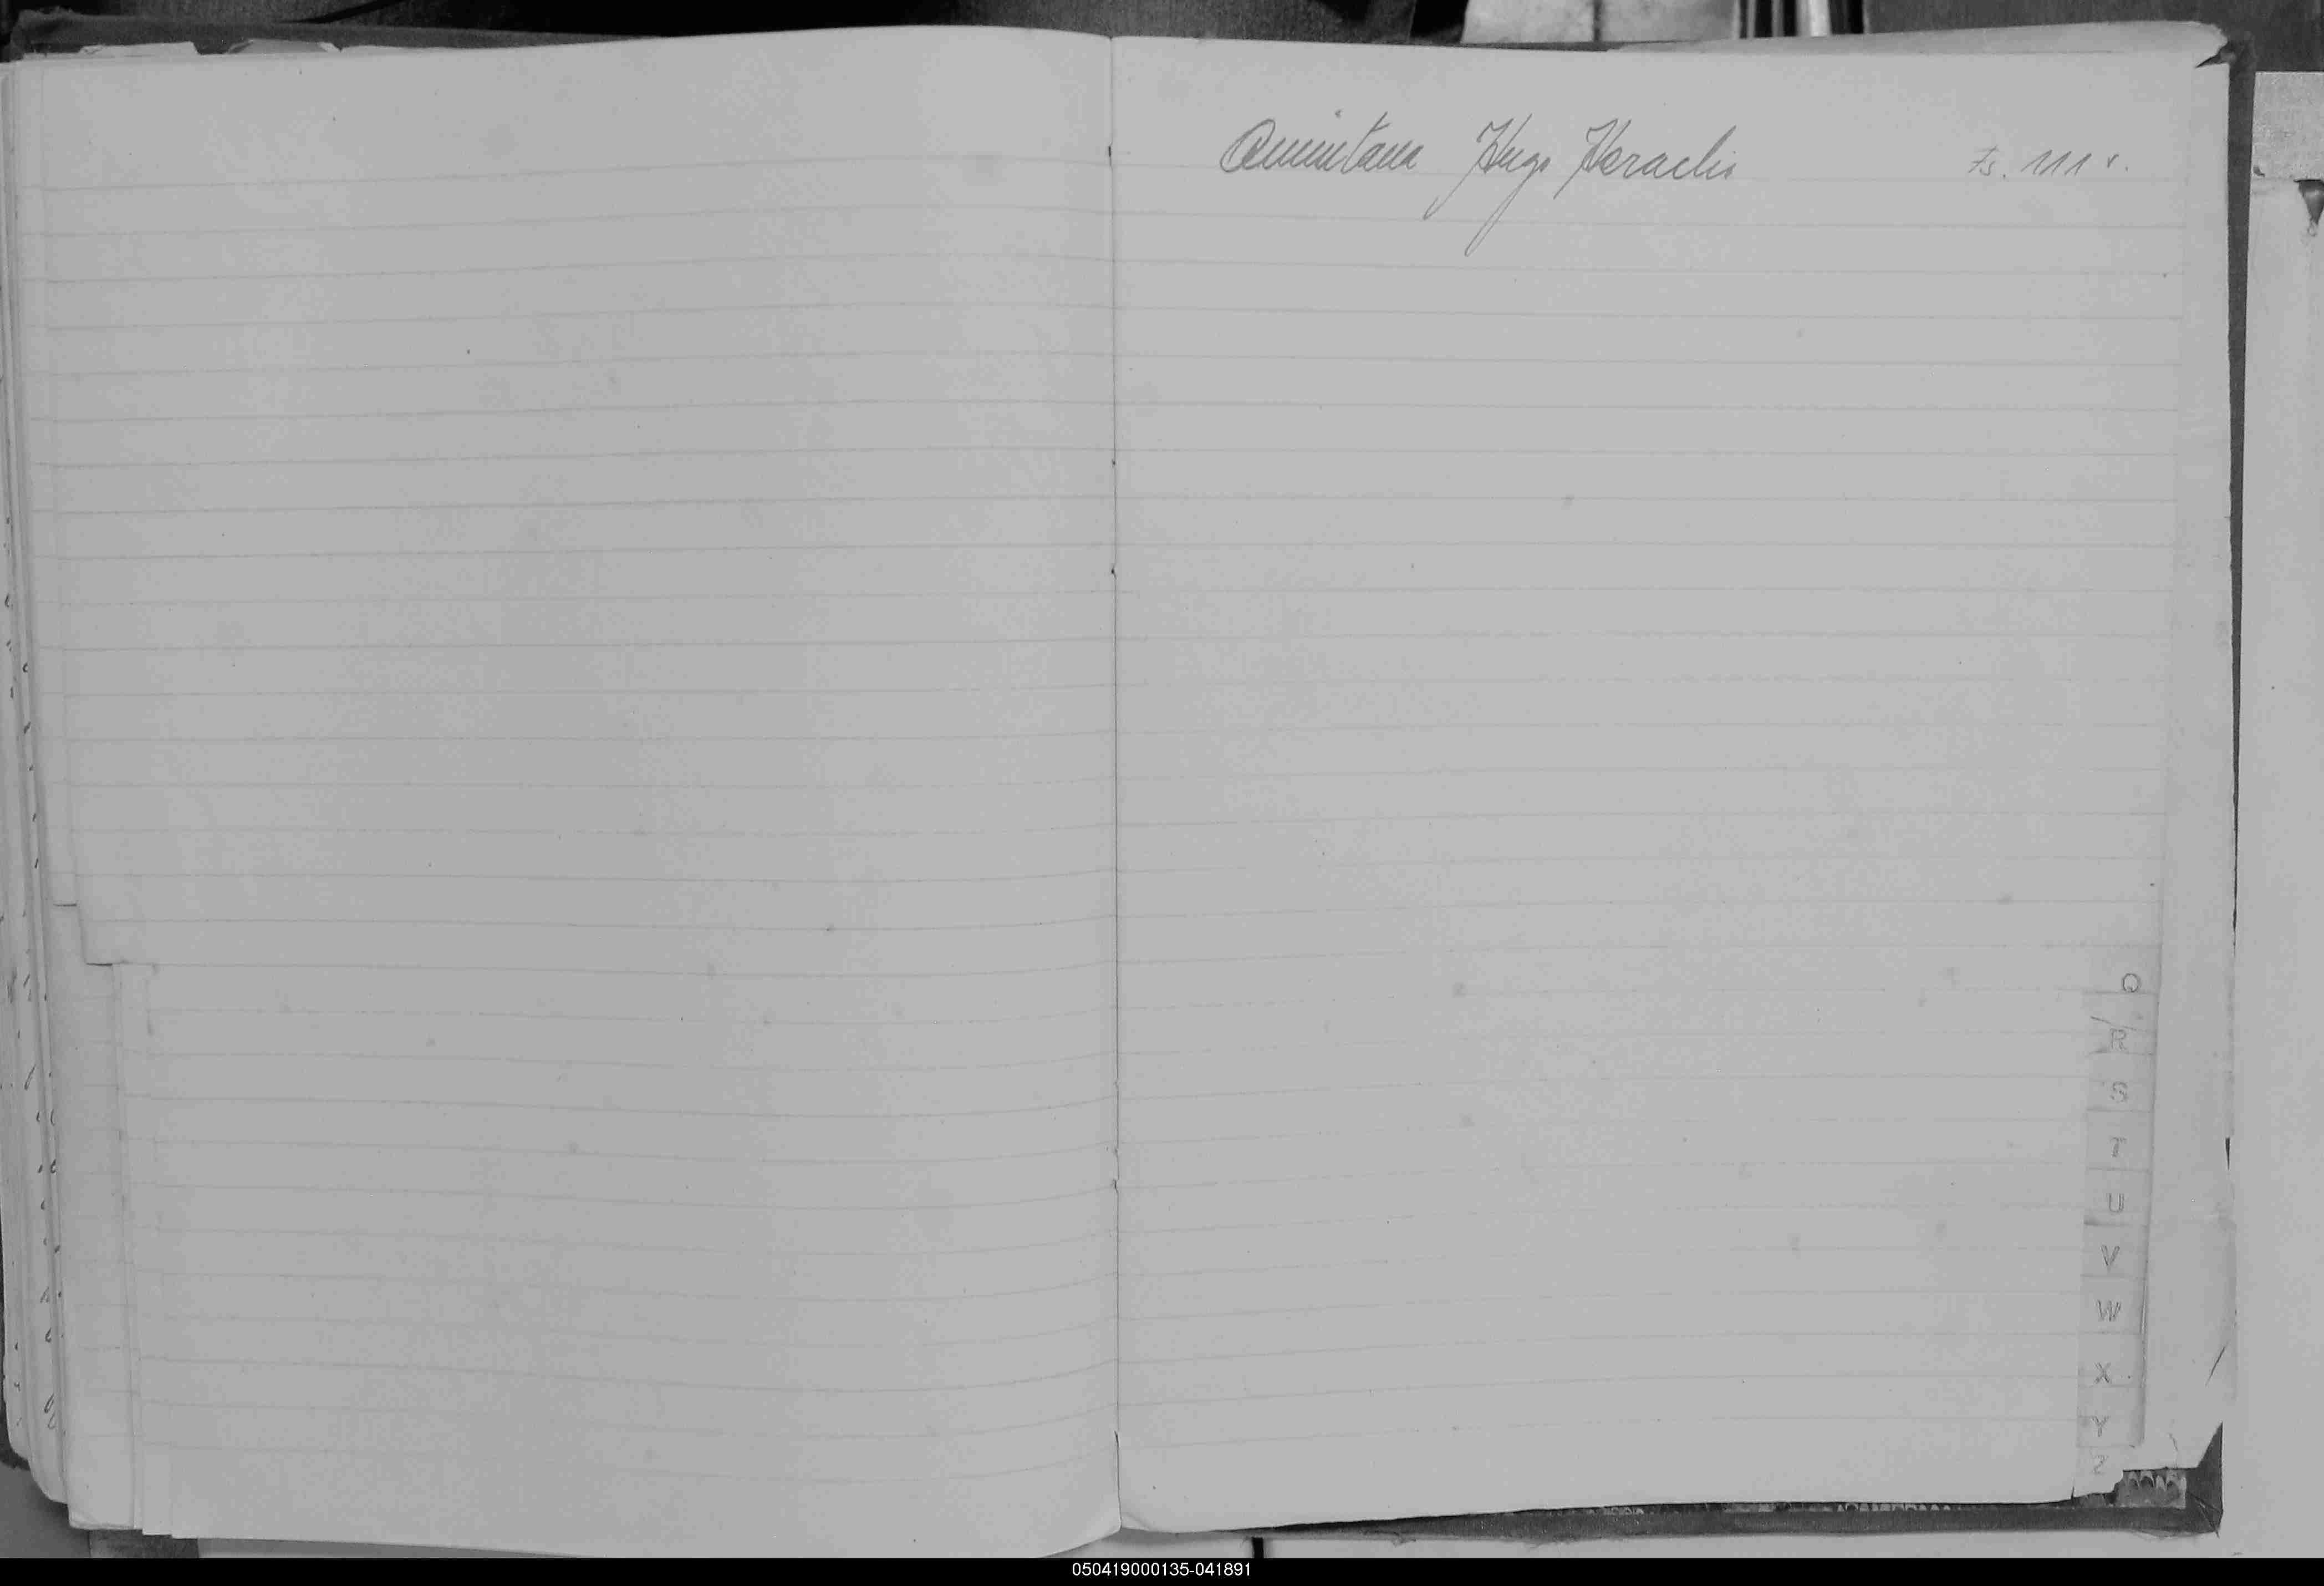 Quintana Hugo Heraclio Fs. 111 v.
Q
R
S
T
U
V
W
X
Y
Z
050419000135-041891